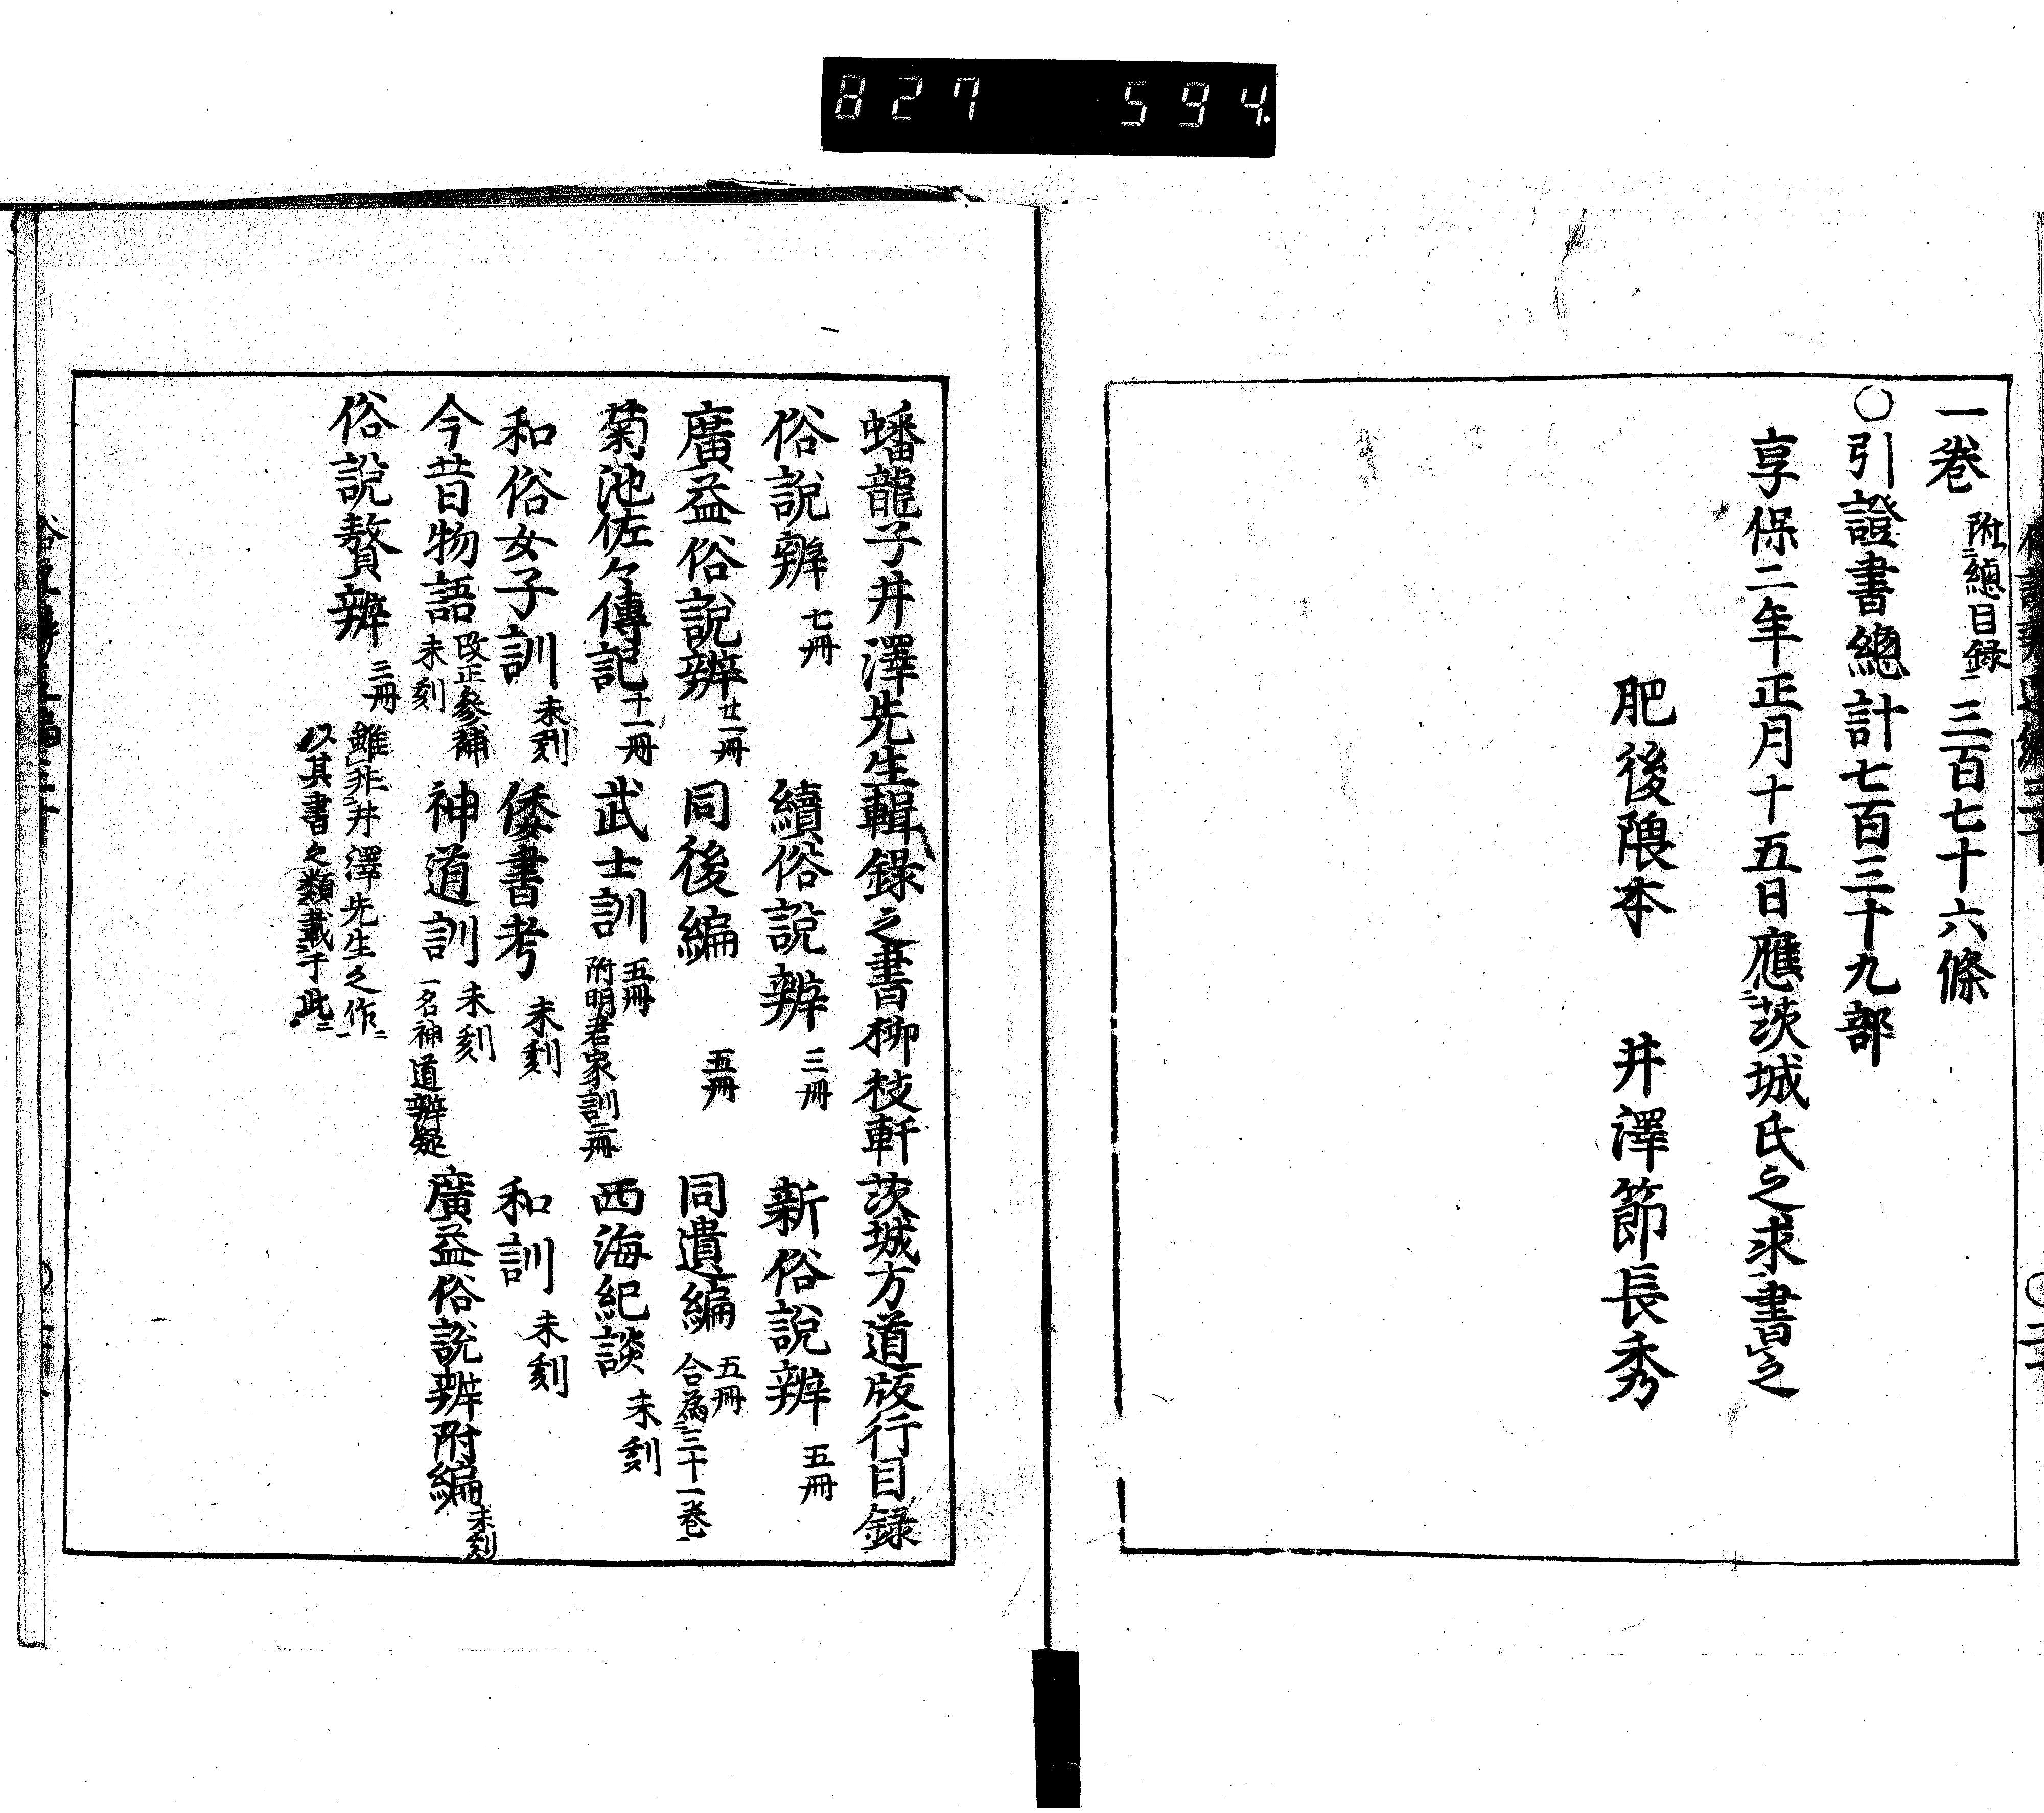 827 594
一巻 附總目録 三百七十六條
○引證書總計七百三十九部
享保二年正月十五日應茨城氏之求書之
肥後隈本 井澤節長秀
蟠龍子井澤先生輯録之書柳枝軒茨城方道版行目録
俗説辨 七冊 續俗説辨 三冊 新俗説辨 五冊
廣益俗説辨 廿一冊 同後編 五冊 同遺編 五冊 合為三十一巻
菊池佐々傳記 十一冊 武士訓 五冊 附明君家訓二冊 西海紀談 未刻
和俗女子訓 未刻 倭書考 未刻 和訓 未刻
今昔物語 改正參補 未刻 神道訓 未刻 一名神道辨疑 廣益俗説辨附編 未刻
俗説贅辨 三冊 雖非井澤先生之作 以其書之類載于此